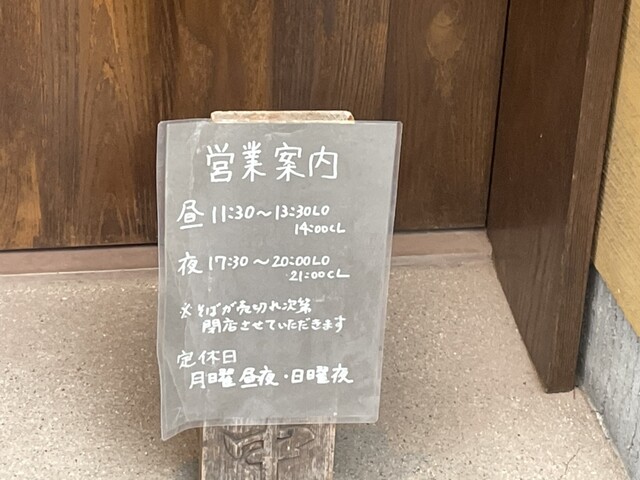 営業案内
昼 11:30～13:30LO
14:00CL
夜 17:30～20:00LO
21:00CL
※そばが売切れ次第
閉店させていただきます
定休日
月曜昼夜・日曜夜